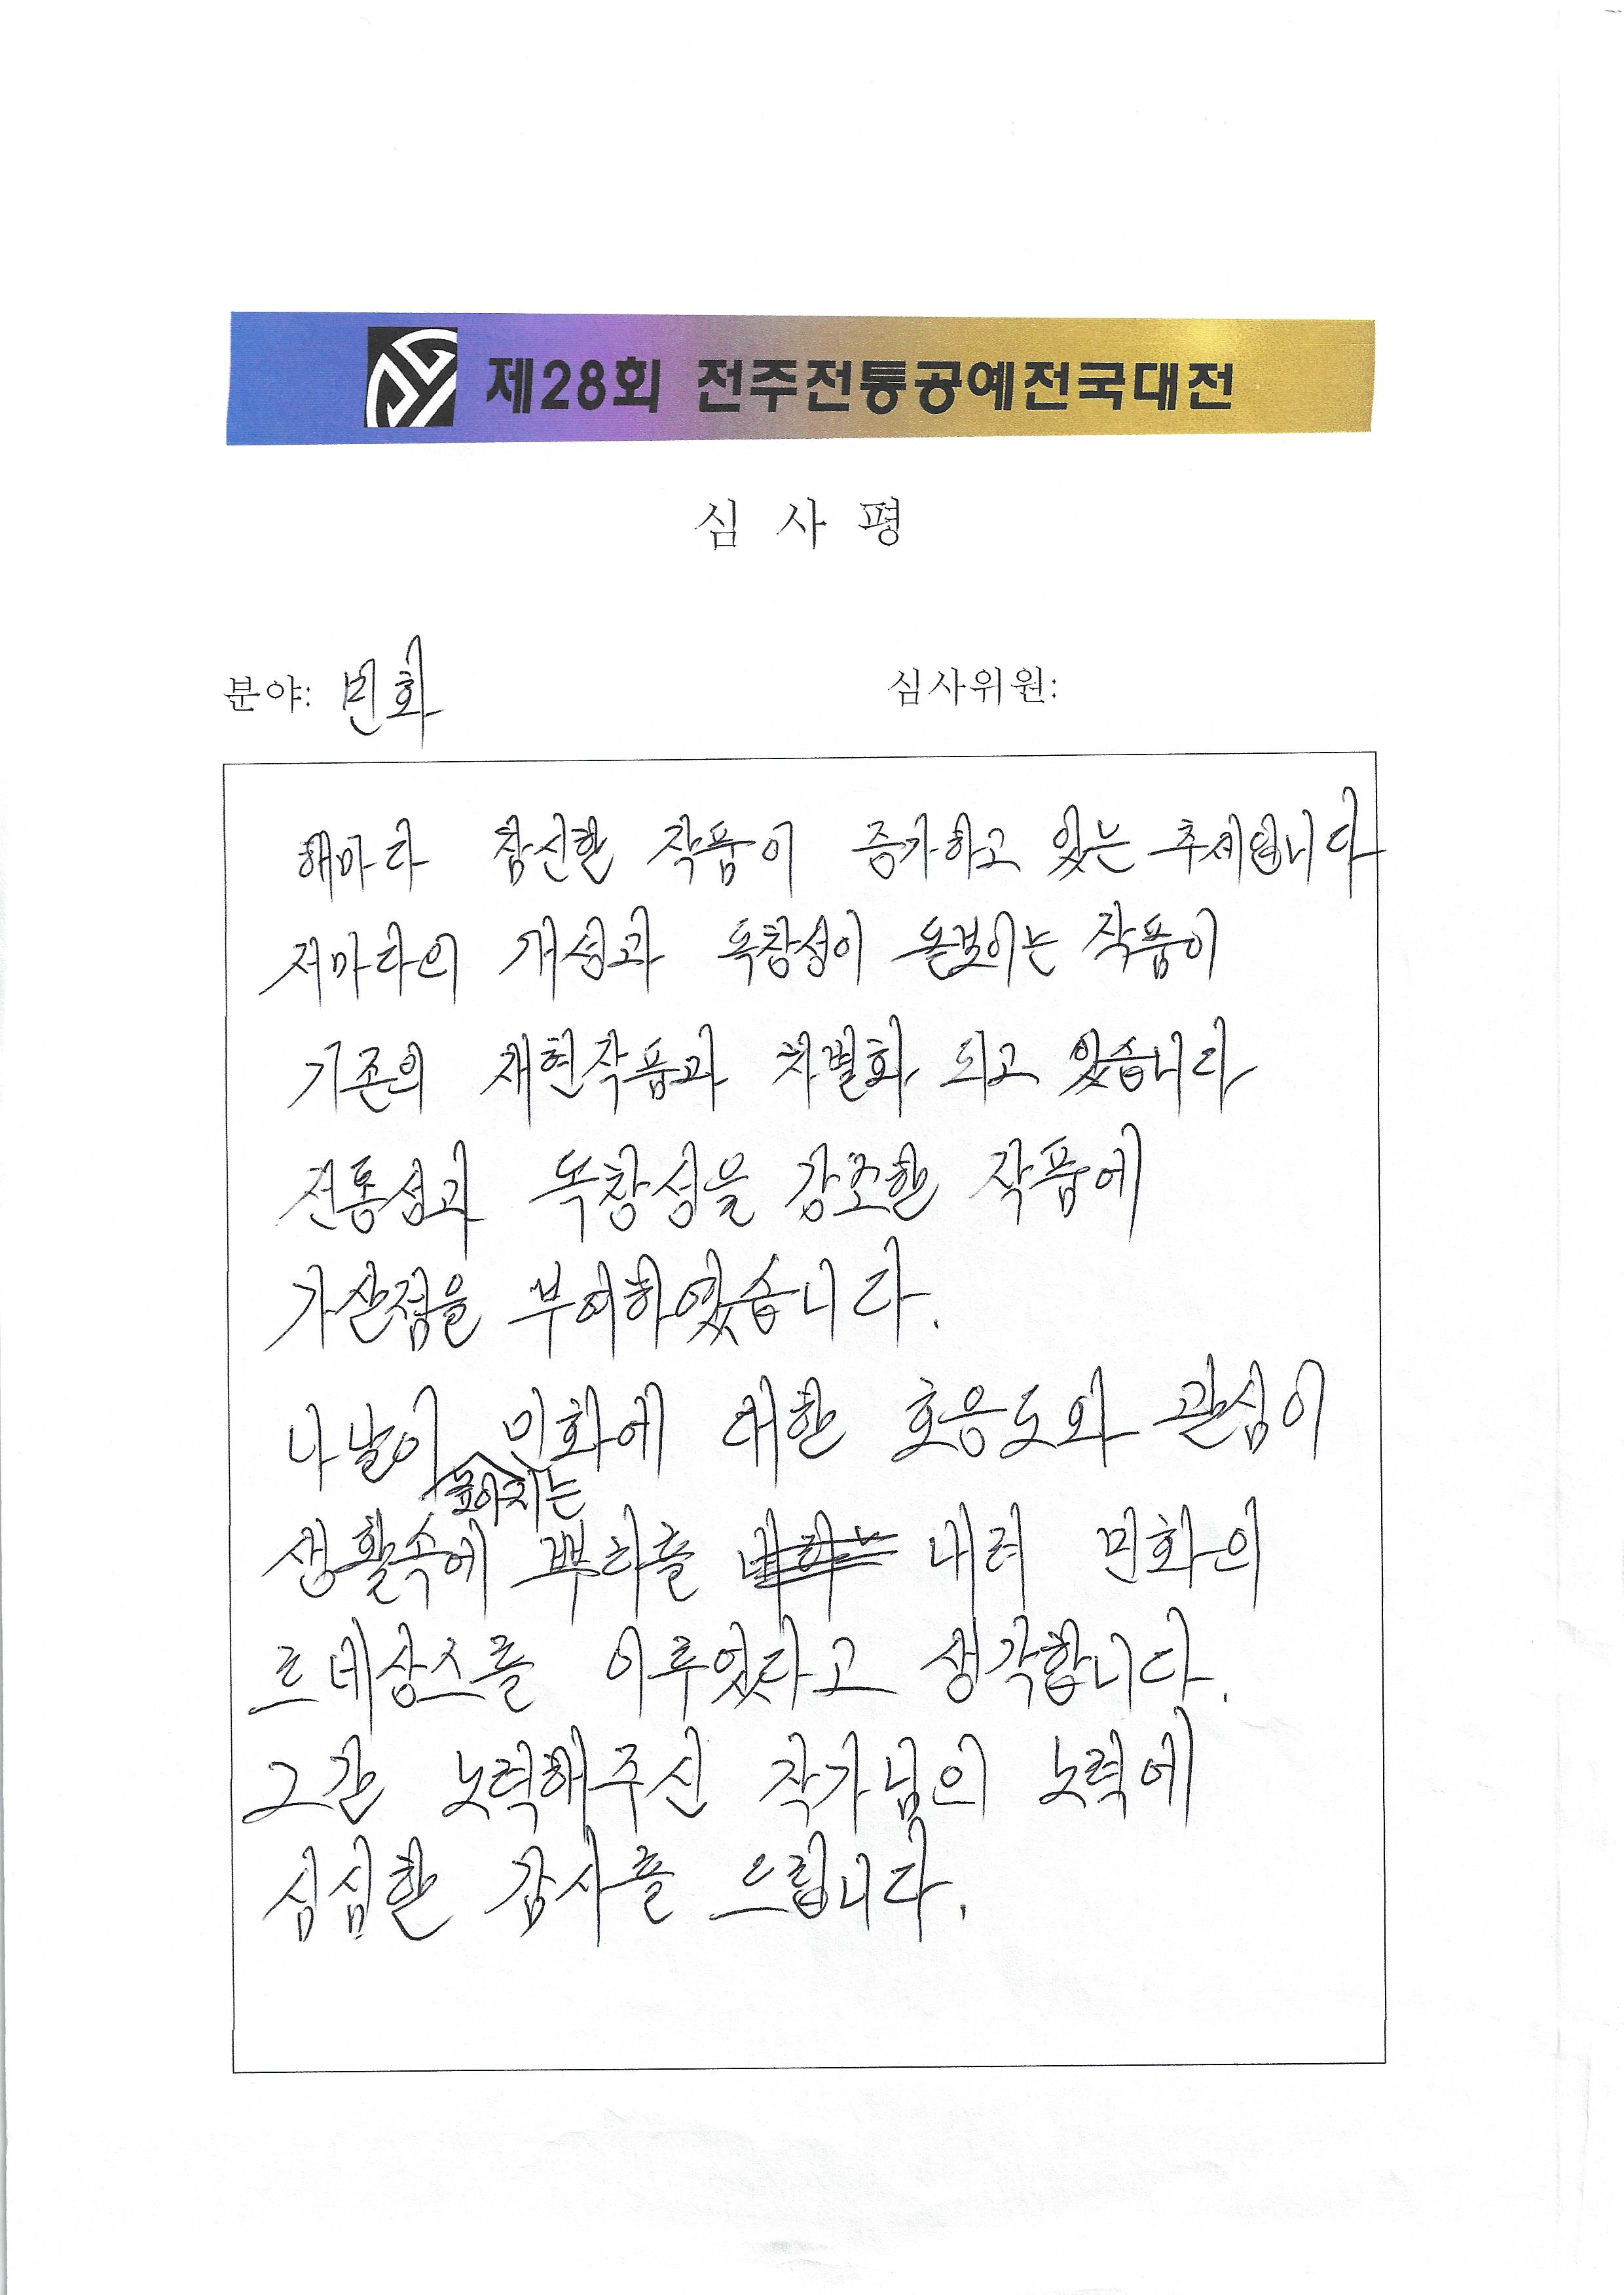 제28회 전주전통공예전국대전
심 사 평
분야: 민화 심사위원:
해마다 참신한 작품이 증가하고 있는 추세입니다
저마다의 개성과 독창성이 돋보이는 작품이
기존의 재현작품과 차별화 되고 있습니다
전통성과 독창성을 강조한 작품에
가산점을 부여하였습니다.
나날이 민화에 대한 호응도와 관심이
높아지는
생활속에 뿌리를 내려 민화의
르네상스를 이루었다고 생각합니다.
그간 노력해주신 작가님의 노력에
심심한 감사를 드립니다.